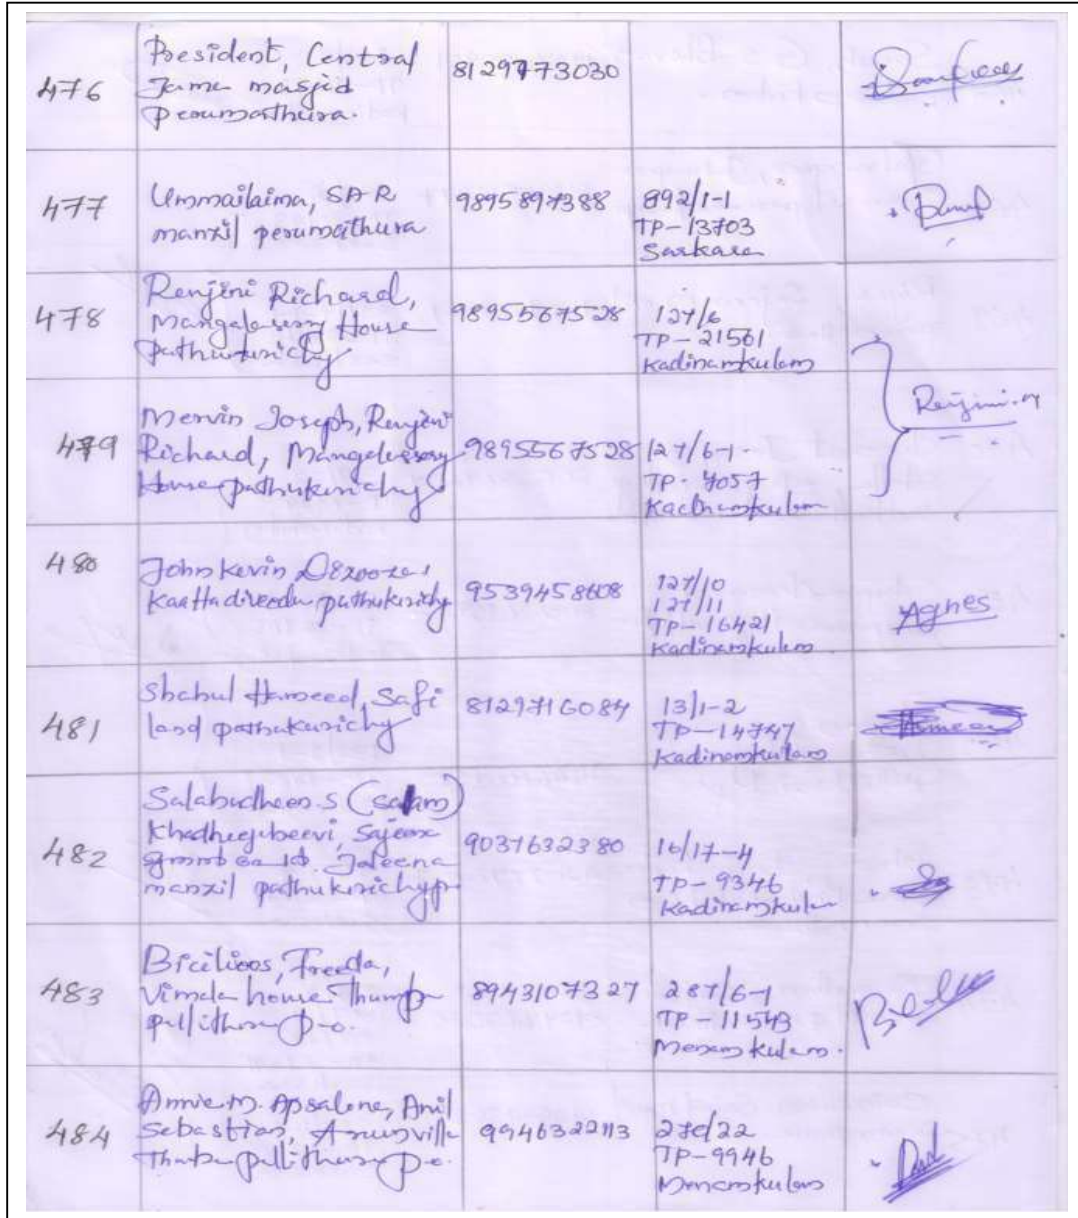 476
President, Central
Jame masjid
Perumathura.
8129773030
477
Ummailaima, SAR
manzil perumathura
9895897388
892/1-1
TP-13703
Sarkara
478
Renjini Richard,
Mangalassery House
pathukurichy
9895567528
127/6
TP-21561
Kadinamkulam
Renjini.M
479
Mervin Joseph, Renjini
Richard, Mangalassery
House pathukurichy
9895567528
127/6-1
TP-7057
Kadinamkulam
480
John Kevin
puthukurichy
9539458608
127/10
127/11
TP-16421
Kadinamkulam
Agnes
481
Shahul Hameed, Safi
land pathukurichy
8129716084
13/1-2
TP-14747
Kadinamkulam
Hameed
482
Salabudheen.S (Salam)
Khadheejabeevi,
Jaleena
manzil pathukurichy
9037632380
16/17-4
TP-9346
Kadinamkulam
483
Freeda,
Vimala house Thumpa
pallithura p-o.
8943107327
287/6-1
TP-11543
Menamkulam.
484
Annie M. Apsalone, Anil
Sebastian,
pallithura p-o.
9946322113
270/22
TP-9946
Menamkulam